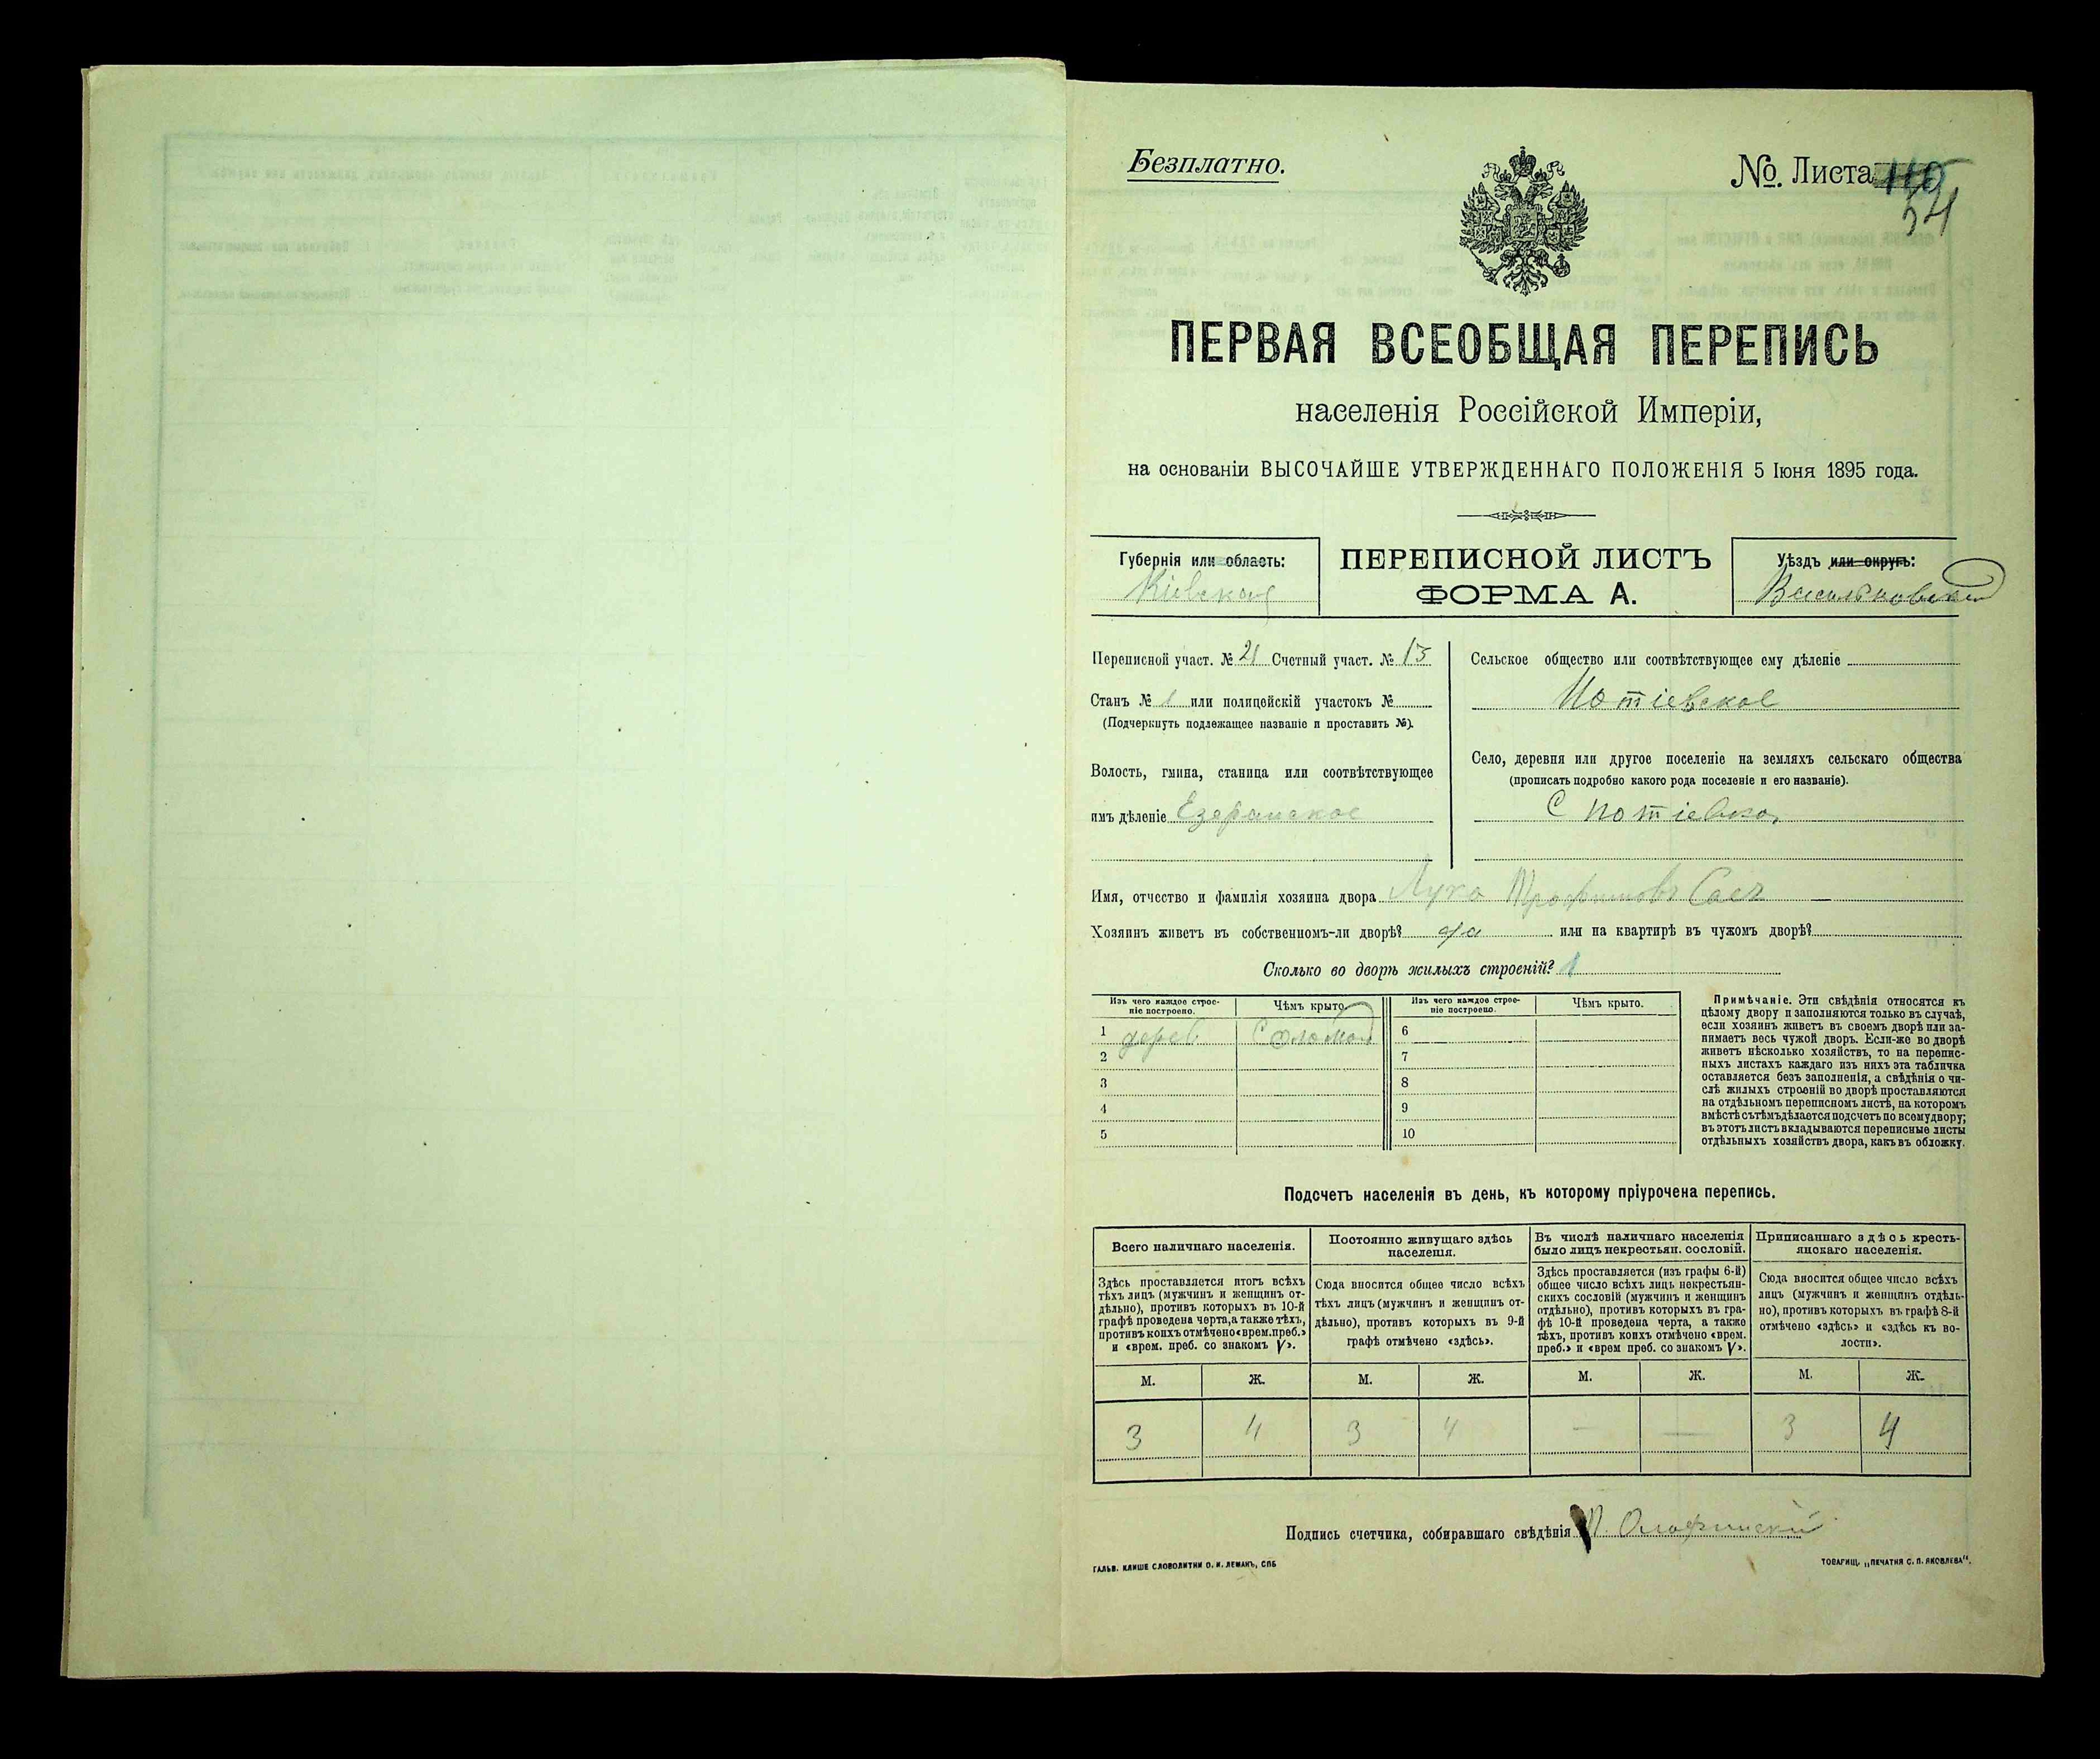 Безплатно.
№ Листа 110
54
ПЕРВАЯ ВСЕОБЩАЯ ПЕРЕПИСЬ
населенія Россійской Имперіи,
на основаніи ВЫСОЧАЙШЕ УТВЕРЖДЕННАГО ПОЛОЖЕНІЯ 5 Іюня 1895 года.
Губернія или область:
Кіевская
ПЕРЕПИСНОЙ ЛИСТЪ
ФОРМА А.
Уѣздъ или округъ:
Васильковскій
Переписной участ. № 21 Счетный участ. № 13
Станъ № 1 или полицейскій участокъ №
(Подчеркнуть подлежащее названіе и проставить №).
Волость, гмина, станица или соотвѣтствующее
имъ дѣленіе Езерянское
Сельское общество или соотвѣтствующее ему дѣленіе
Потіевское
Село, деревня или другое поселеніе на земляхъ сельскаго общества
(прописать подробно какого рода поселеніе и его названіе).
С Потіевка
Имя, отчество и фамилія хозяина двора Лука Трофимовъ
Хозяинъ живетъ въ собственномъ-ли дворѣ? да или на квартирѣ въ чужомъ дворѣ?
Сколько во дворѣ жилыхъ строеній? 1
Изъ чего каждое строе-
ніе построено.
Чѣмъ крыто.
Изъ чего каждое строе-
ніе построено.
Чѣмъ крыто.
1 дерев. Соломой 6
2 7
3 8
4 9
5 10
Примѣчаніе. Эти свѣдѣнія относятся къ
цѣлому двору и заполняются только въ случаѣ,
если хозяинъ живетъ въ своемъ дворѣ или за-
нимаетъ весь чужой дворъ. Если-же во дворѣ
живетъ нѣсколько хозяйствъ, то на перепис-
ныхъ листахъ каждаго изъ нихъ эта табличка
оставляется безъ заполненія, а свѣдѣнія о чи-
слѣ жилыхъ строеній во дворѣ проставляются
на отдѣльномъ переписномъ листѣ, на которомъ
вмѣстѣ съ тѣмъ дѣлается подсчетъ по всему двору;
въ этотъ листъ вкладываются переписные листы
отдѣльныхъ хозяйствъ двора, какъ въ обложку.
Подсчетъ населенія въ день, къ которому пріурочена перепись.
Всего наличнаго населенія.
Здѣсь проставляется итогъ всѣхъ
тѣхъ лицъ (мужчинъ и женщинъ от-
дѣльно), противъ которыхъ въ 10-й
графѣ проведена черта, а также тѣхъ,
противъ коихъ отмѣчено «врем. преб.»
и «врем. преб. со знакомъ V».
Постоянно живущаго здѣсь
населенія.
Сюда вносится общее число всѣхъ
тѣхъ лицъ (мужчинъ и женщинъ от-
дѣльно), противъ которыхъ въ 9-й
графѣ отмѣчено «здѣсь».
Въ числѣ наличнаго населенія
было лицъ некрестьян. сословій.
Здѣсь проставляется (изъ графы 6-й)
общее число всѣхъ лицъ некрестьян-
скихъ сословій (мужчинъ и женщинъ
отдѣльно), противъ которыхъ въ гра-
фѣ 10-й проведена черта, а также
тѣхъ, противъ коихъ отмѣчено «врем.
преб.» и «врем преб. со знакомъ V».
Приписаннаго здѣсь кресть-
янскаго населенія.
Сюда вносится общее число всѣхъ
лицъ (мужчинъ и женщинъ отдѣль-
но), противъ которыхъ въ графѣ 8-й
отмѣчено «здѣсь» и «здѣсь къ во-
лости».
М. Ж. М. Ж. М. Ж. М. Ж.
3 4 3 4 — — 3 4
Подпись счетчика, собиравшаго свѣдѣнія
ГАЛЬВ. КЛИШЕ СЛОВОЛИТНИ О. И. ЛЕМАНЪ, СПБ
ТОВАРИЩ. „ПЕЧАТНЯ С. П. ЯКОВЛЕВА".